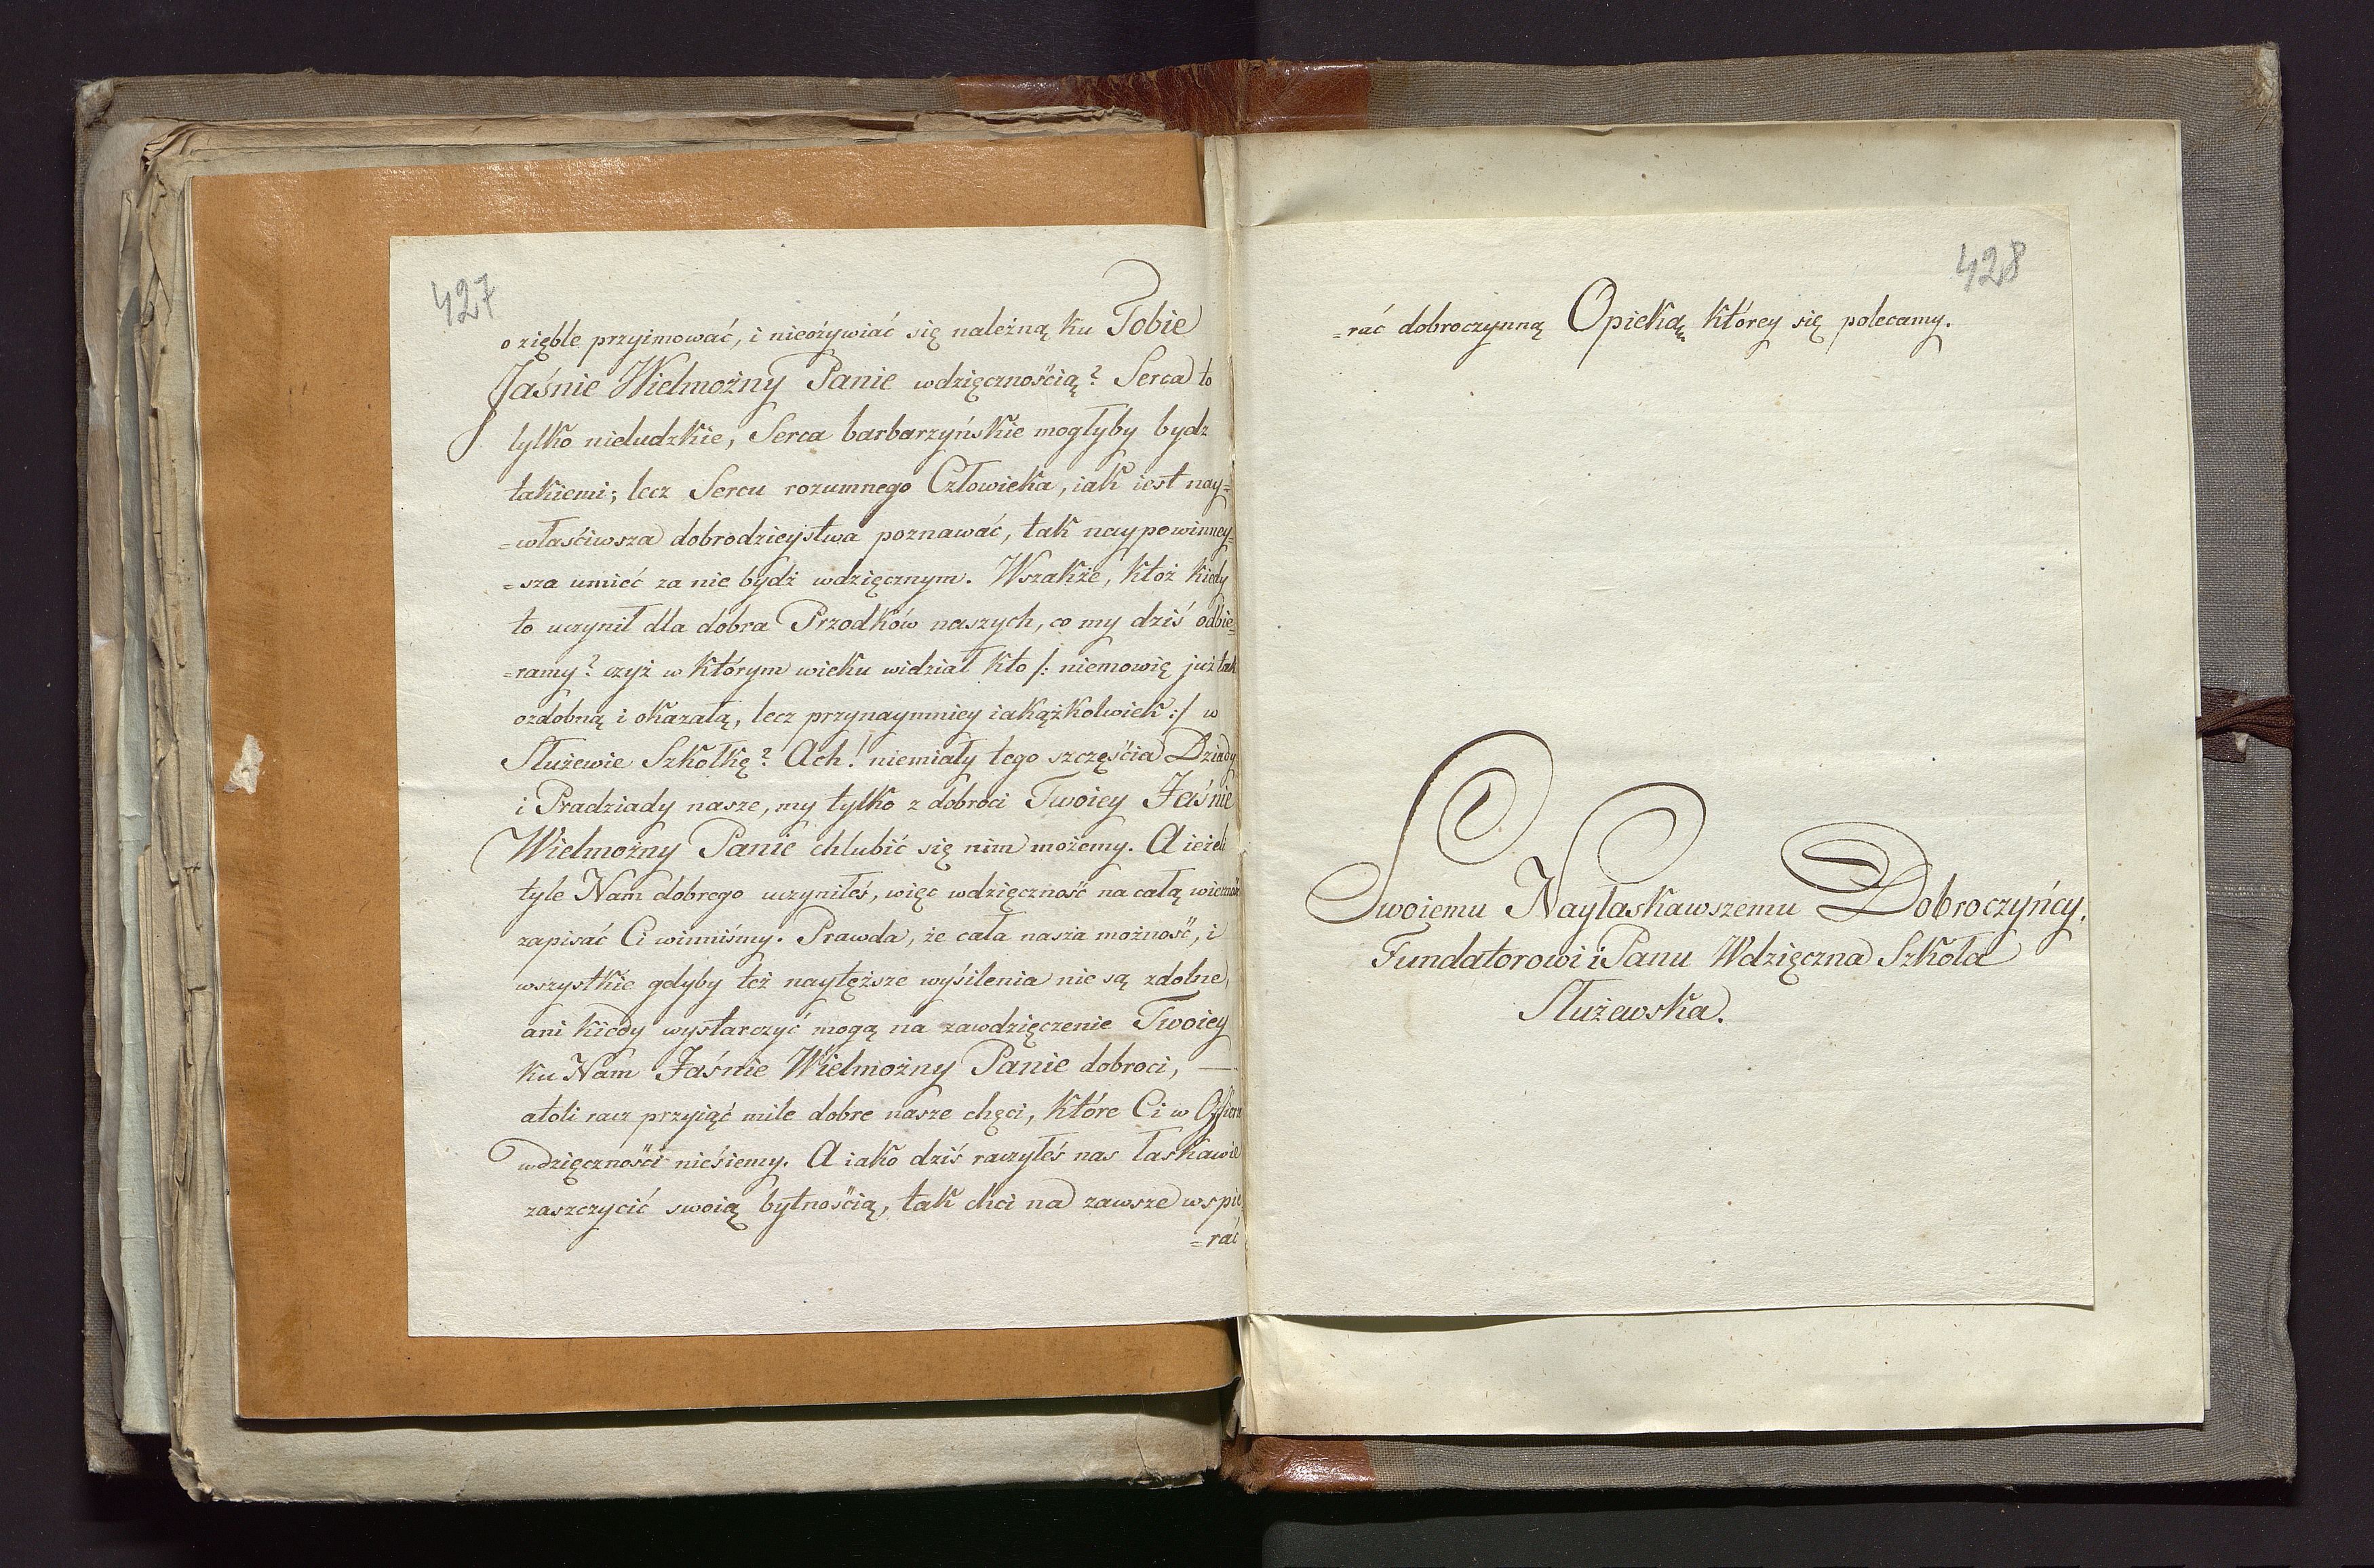 427
ozięble przyimować, i nieożywiać się należną ku Tobie
Jaśnie Wielmożny Panie wdzięcznością? Serca to
tylko nieludzkie, Serca barbarzyńskie mogłyby bydz
takiemi; lecz Sercu rozumnego Człowieka, iak iest nay=
=właściwsza dobrodzieystwa poznawać, tak naypowinney=
=sza umieć za nie bydź wdzięcznym. Wszakże, któż kiedy
to uczynił dla dobra Przodków naszych, co my dziś odbie=
=ramy? czyż w którym wieku widział kto /: niemowię już tak
ozdobną i okazałą, lecz przynaymniey iakążkolwiek :/ w
Służewie Szkołkę? Ach! niemiały tego szczęścia Dziady
i Pradziady nasze, my tylko z dobroci Twoiey Jaśnie
Wielmożny Panie chlubić się nim możemy. A ieżeli
tyle Nam dobrego uczyniłeś, więc wdzięczność na całą
zapisać Ci winniśmy. Prawda, że cała nasza możność, i
wszystkie gdyby też naytęższe wysilenia nie są zdolne,
ani kiedy wystarczyć mogą na zawdzięczenie Twoiey
ku Nam Jaśnie Wielmożny Panie dobroci, —
atoli racz przyiąć mile dobre nasze chęci, które Ci w
wdzięczności niesiemy. A iako dziś raczyłeś nas łaskawie
zaszczycić swoią bytnością, tak chci na zawsze wspie
=rać
428
=rać dobroczynną Opieką, którey się polecamy.
Swoiemu Nayłaskawszemu Dobroczyńcy,
Fundatorowi i Panu Wdzięczna Szkoła
Służewska.